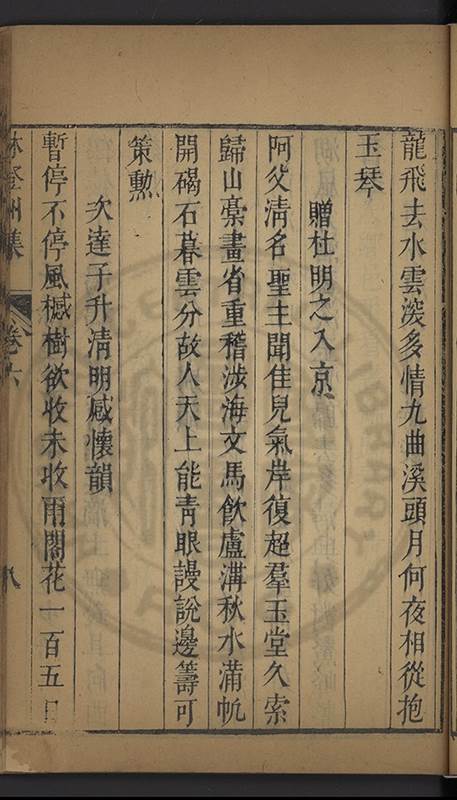 龍飛去水雲深多情九曲溪頭月何夜相從抱
玉琴
贈杜明之入京
阿父清名聖主聞佳兒氣岸復超羣玉堂久索
歸山藁畫省重稽涉海文馬飲盧溝秋水滿帆
開碣石暮雲分故人天上能青眼謾說邊籌可
策勲
次達子升清明感懷韻
暫停不停風撼樹欲收未收雨閣花一百五日
林登州集
卷六
八